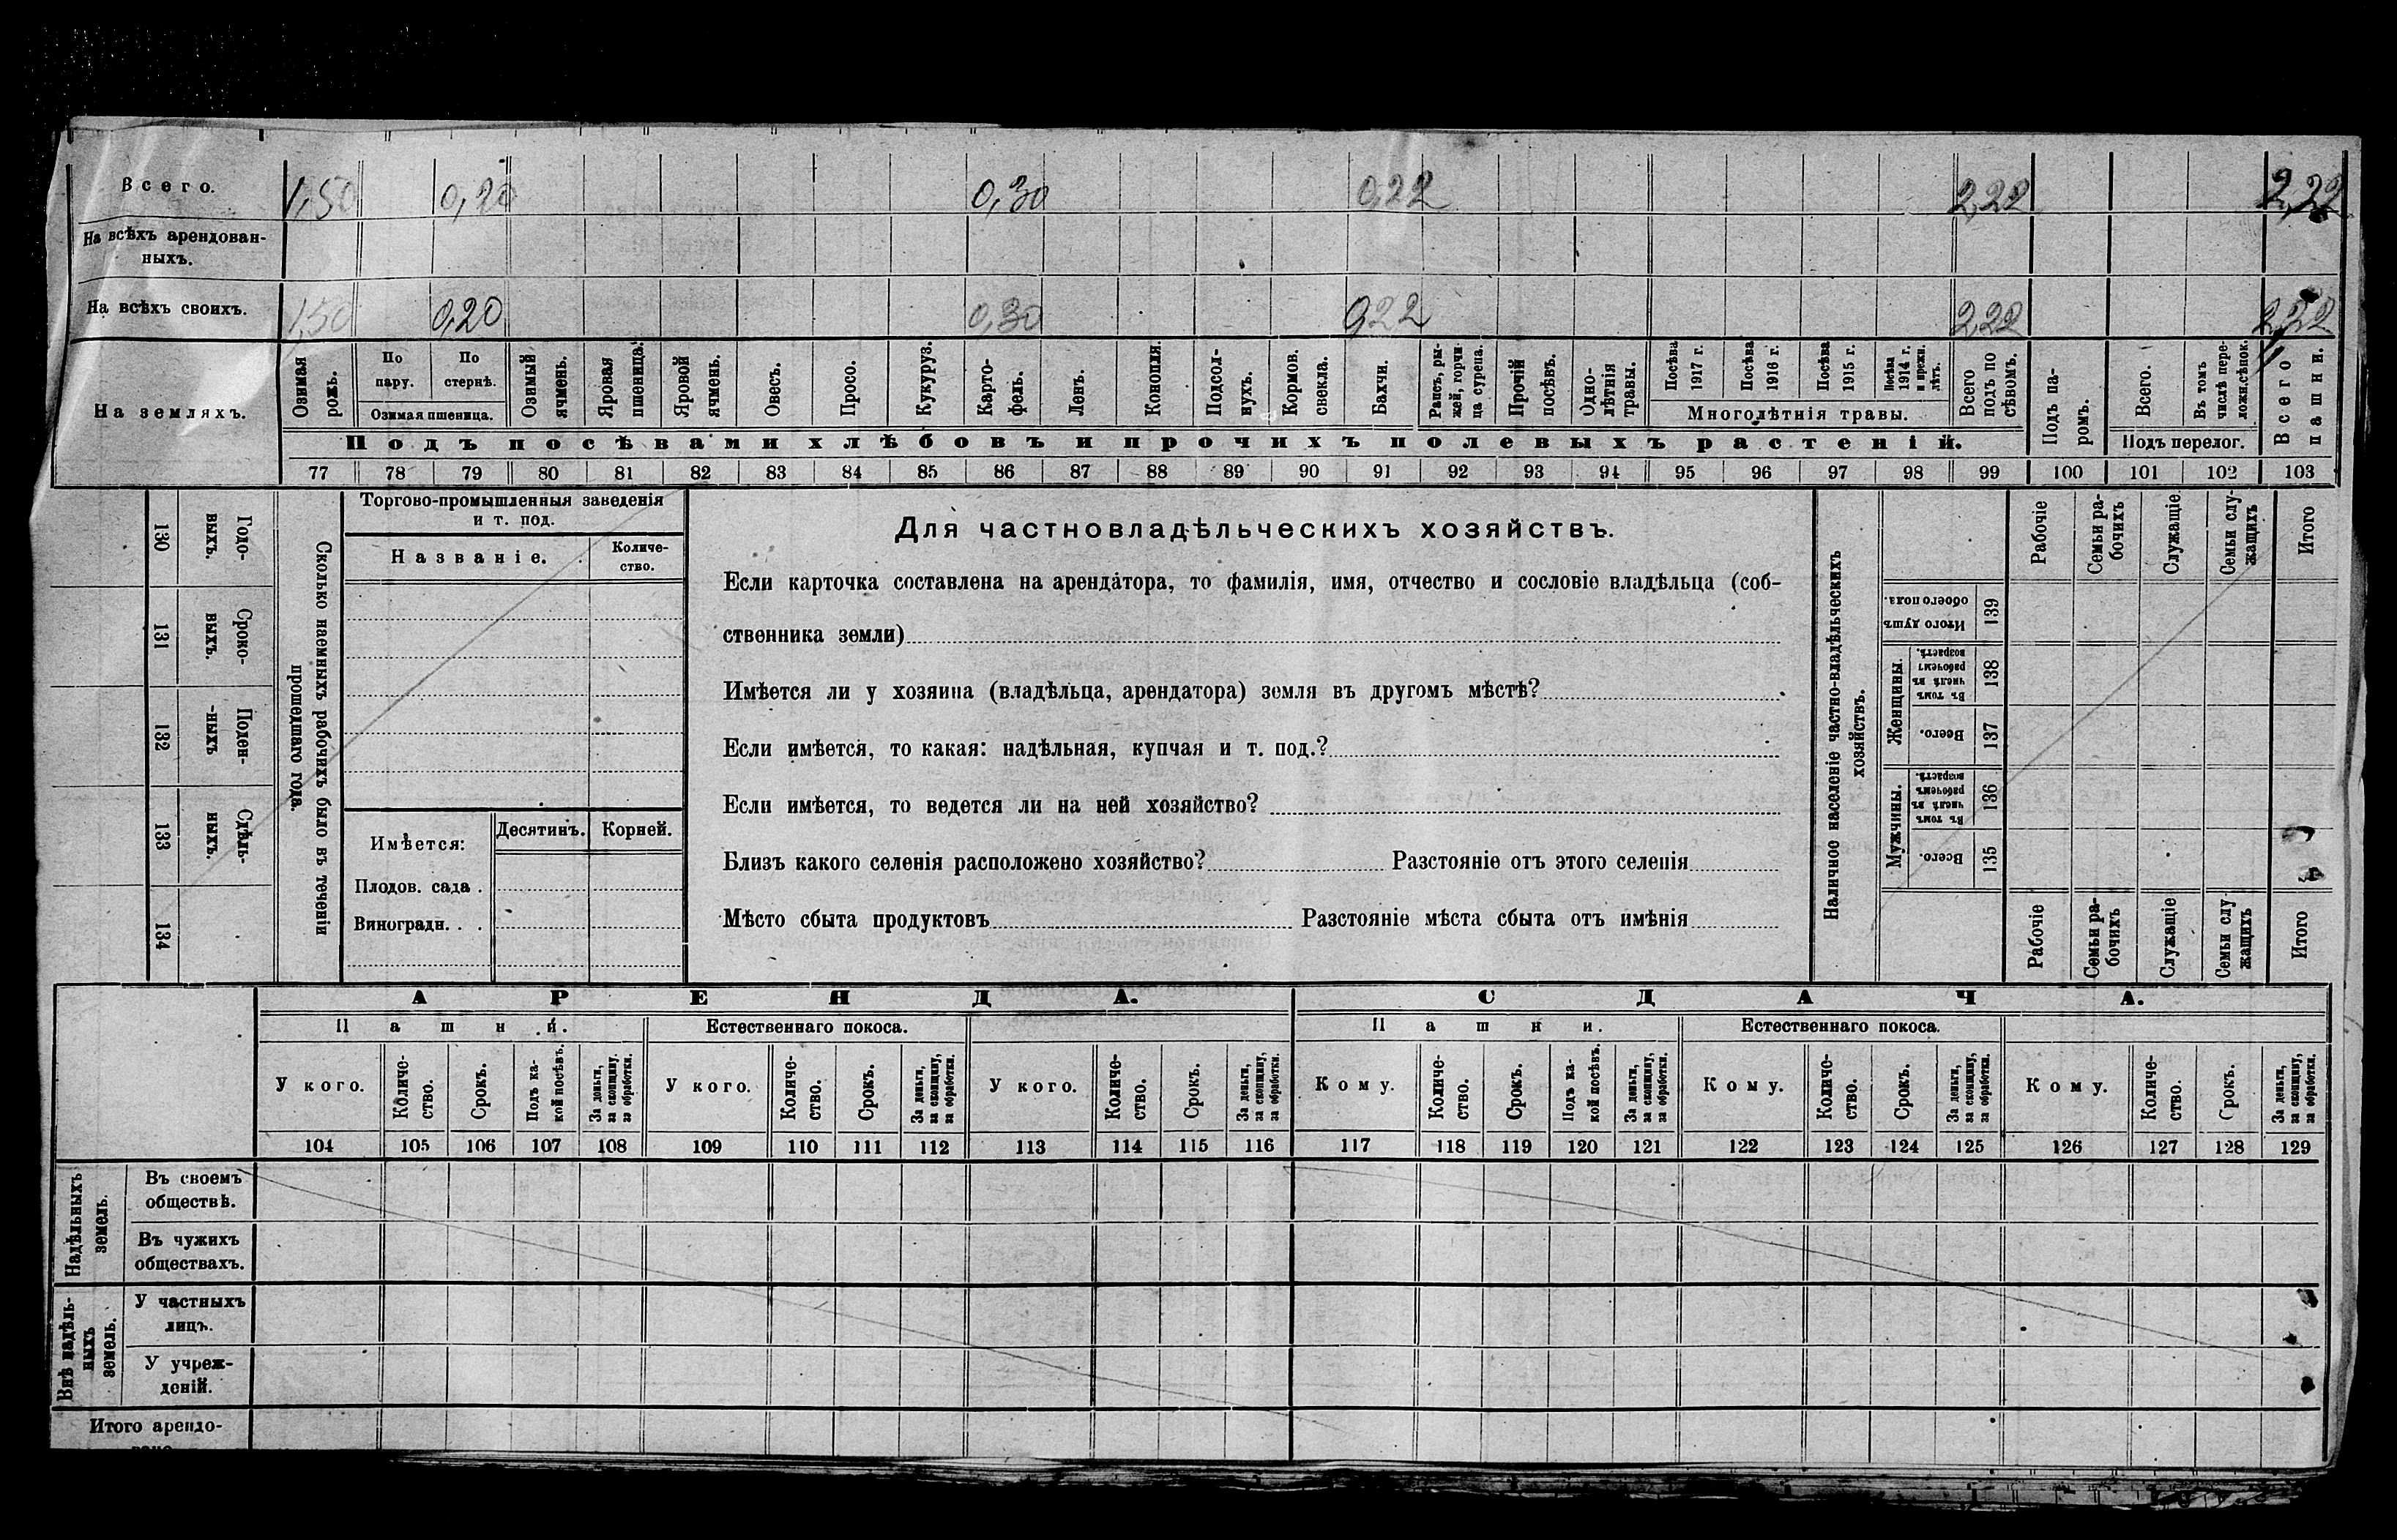 Всего. 1,50 0,20 0,30 0,22 2,22 2,22
На всѣхъ арендован-
ныхъ.
На всѣхъ своихъ. 1,50 0,20 0,30 0,22 2,22 2,22
На земляхъ.
Озимая рожь.
По пару.
По стернѣ.
Озимая пшеница.
Озимый ячмень.
Яровая пшеница.
Яровой ячмень.
Овесъ.
Просо.
Кукуруз.
Карто-
фель.
Ленъ.
Конопля.
Подсол-
нухъ.
Кормов.
свекла.
Бахчи.
Рапсъ, ры-
жей, горчи
ца сурепа.
Прочій
посѣвъ.
Одно-
лѣтнія
травы.
Посѣва
1917 г.
Посѣва
1916 г.
Посѣва
1915 г.
Посѣва
1914 г.
и прежн.
лѣтъ.
Многолѣтнія травы.
Всего
подъ по
сѣвомъ.
Подъ па-
ромъ.
Всего.
Въ томъ
числѣ пере-
ложн.сѣнок.
Подъ перелог.
Всего
пашни.
Подъ посѣвами хлѣбовъ и прочихъ полевыхъ растеній.
77 78 79 80 81 82 83 84 85 86 87 88 89 90 91 92 93 94 95 96 97 98 99 100 101 102 103
130 Годо-
выхъ.
131 Сроко-
выхъ.
132 Поден-
-ныхъ
133 Сдѣль-
ныхъ.
134
Сколько наемныхъ рабочихъ было въ теченіи
прошедшаго года.
Торгово-промышленныя заведенія
и т. под.
Названіе.
Количе-
ство.
Имѣется:
Десятинъ. Корней.
Плодов. сада .
Виноградн. . .
Для частновладѣльческихъ хозяйствъ.
Если карточка составлена на арендатора, то фамилія, имя, отчество и сословіе владѣльца (соб-
ственника земли)
Имѣется ли у хозяина (владѣльца, арендатора) земля въ другомъ мѣстѣ?
Если имѣется, то какая: надѣльная, купчая и т. под.?
Если имѣется, то ведется ли на ней хозяйство?
Близъ какого селенія расположено хозяйство? Разстояніе отъ этого селенія
Мѣсто сбыта продуктовъ Разстояніе мѣста сбыта отъ имѣнія
Наличное населеніе частно-владѣльческихъ
хозяйствъ.
Рабочіе
Семьи ра-
бочихъ
Служащіе
Семьи слу-
жащихъ
Итого
Итого душъ
обоего пола.
139
Женщины.
Въ томъ
числѣ въ
рабочемъ
возрастѣ.
138
Всего.
137
Мужчины.
Въ томъ
числѣ въ
рабочемъ
возрастѣ.
136
Всего.
135
Рабочіе
Семьи ра-
бочихъ
Служащіе
Семьи слу
жащихъ
Итого
АРЕНДА. СДАЧА.
Пашни. Естественнаго покоса. Пашни. Естественнаго покоса.
У кого.
Количе-
ство.
Срокъ.
Подъ ка-
кой посѣвъ.
За деньги,
за скопщину.
за обработки.
У кого.
Количе-
ство.
Срокъ.
За деньги,
за скопщину,
за обработки.
У кого.
Количе-
ство.
Срокъ.
За деньги,
за скопщину,
за обработки.
Кому.
Количе-
ство.
Срокъ.
Подъ ка-
кой посѣвъ.
За деньги,
за скопщину,
за обработки.
Кому.
Количе-
ство.
Срокъ.
За деньги,
за скопщину,
за обработки.
Кому.
Количе-
ство.
Срокъ.
За деньги,
за скопщину,
за обработки.
104 105 106 107 108 109 110 111 112 113 114 115 116 117 118 119 120 121 122 123 124 125 126 127 128 129
Надѣльныхъ
земель.
Въ своемъ
обществѣ.
Въ чужихъ
обществахъ.
Внѣ надѣль-
ныхъ
земель.
У частныхъ
лицъ.
У учреж-
деній.
Итого арендо-